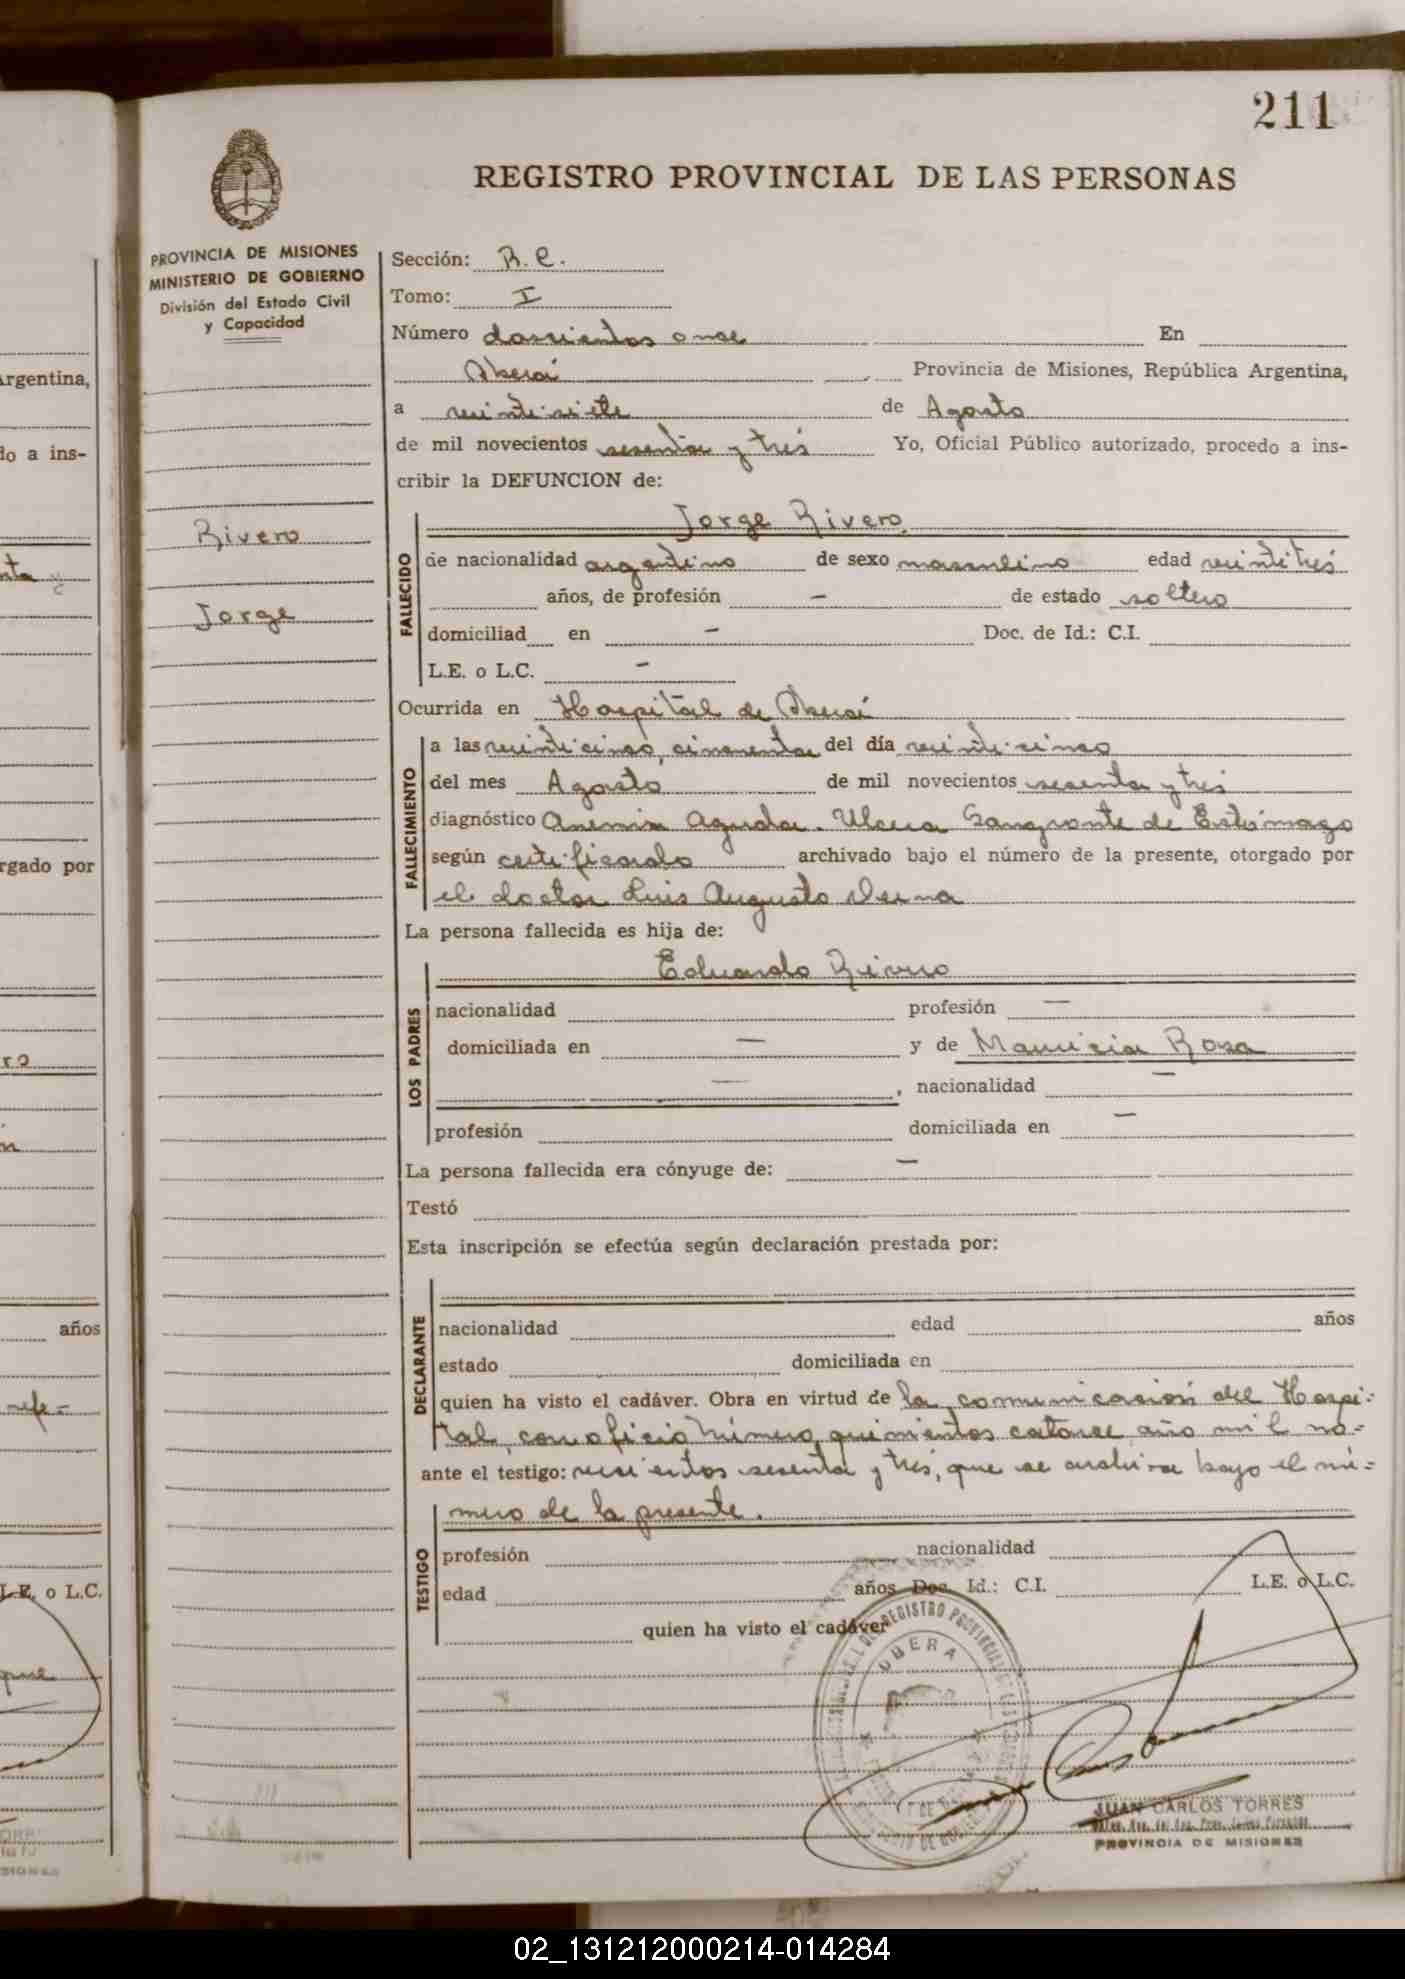 211
REGISTRO PROVINCIAL DE LAS PERSONAS
PROVINCIA DE MISIONES
MINISTERIO DE GOBIERNO
División del Estado Civil
y Capacidad
Sección: R. C.
Tomo: I
Número doscientos once En
Oberá Provincia de Misiones, República Argentina,
a veintisiete de Agosto
de mil novecientos sesenta y tres Yo, Oficial Público autorizado, procedo a ins-
cribir la DEFUNCION de:
Rivero
Jorge
FALLECIDO
Jorge Rivero
de nacionalidad argentino de sexo masculino edad veintitrés
años, de profesión - de estado soltero
domiciliad en - Doc. de Id.: C.I.
L.E. o L.C. -
Ocurrida en Hospital de Oberá
FALLECIMIENTO
a las veinticinco, cincuenta del día veinticinco
del mes Agosto de mil novecientos sesenta y tres
diagnóstico Anemia Aguda. Ulcera Sangrante de Estómago
según certificado archivado bajo el número de la presente, otorgado por
el doctor Luis Augusto
La persona fallecida es hija de:
LOS PADRES
Eduardo Rivero
nacionalidad profesión —
domiciliada en — y de Mauricia Rosa
— , nacionalidad —
profesión domiciliada en —
La persona fallecida era cónyuge de: —
Testó
Esta inscripción se efectúa según declaración prestada por:
DECLARANTE
nacionalidad edad años
estado domiciliada en
quien ha visto el cadáver. Obra en virtud de la comunicación del Hospi-
tal, con oficio número quinientos catorce año mil no-
ante el testigo: vecientos sesenta y tres, que se archiva bajo el nú-
mero de la presente.
TESTIGO
profesión nacionalidad
edad años Doc. Id.: C.I. L.E. o L.C.
quien ha visto el cadáver
OBERA
JUAN CARLOS TORRES
PROVINCIA DE MISIONES
Argentina,
do a ins-
rgado por
años
L.E. o L.C.
02_131212000214-014284